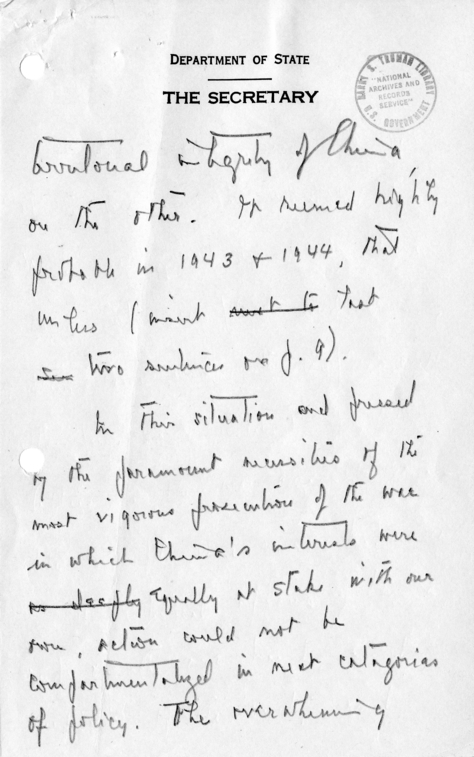 DEPARTMENT OF STATE
THE SECRETARY
HARRY S. TRUMAN LIBRARY
"NATIONAL
ARCHIVES AND
RECORDS
SERVICE"
U.S. GOVERNMENT
territorial integrity of China,
on the other. It seemed highly
probable in 1943 & 1944, that
unless (insert next to last
two sentences on p. 9).
In this situation and pressed
by the paramount necessities of the
most vigorous prosecution of the war
in which China's interests were
as deeply equally at stake with our
own, action could not be
compartmentalized in neat catagories
of policy. The overwhelming